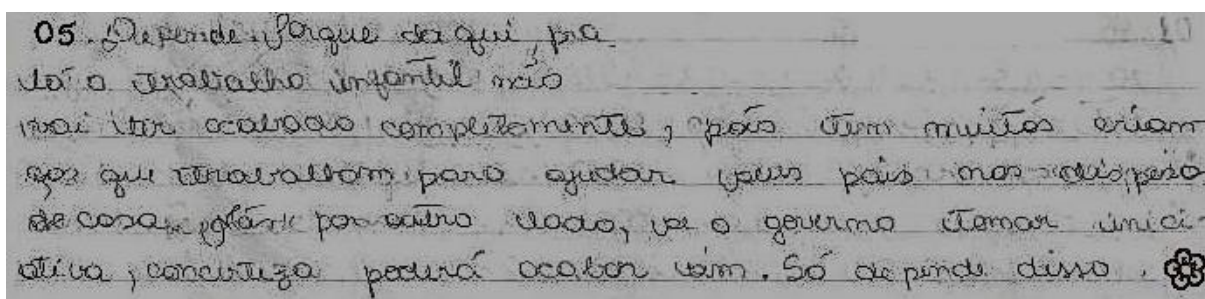 05. Depende. Porque daqui, pra
lá o trabalho infantil não
vai ter acabado completamente, pois tem muitas crian
ças que trabalham para ajudar seus pais nas despesa
de casa. por outro lado, se o governo tomar inici-
ativa, concerteza poderá acabar sim. Só depende disso.